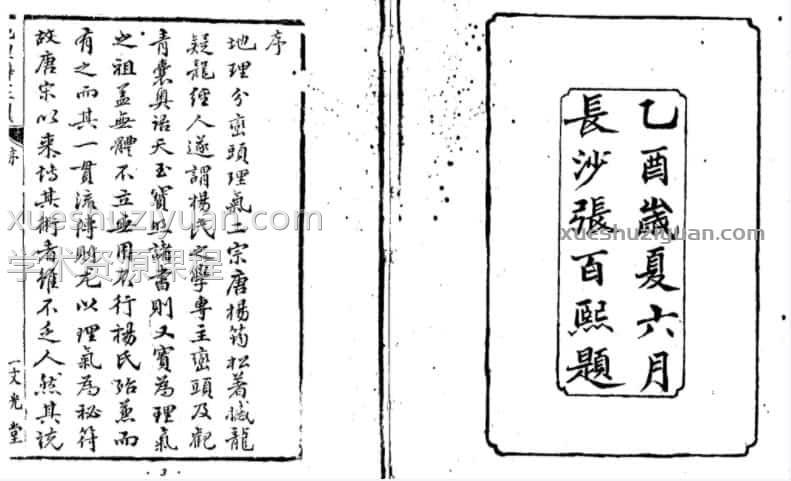 乙酉歲夏六月
長沙張百熙題
序
地理分巒頭理氣二宗唐楊筠松著撼龍
疑龍經人遂謂楊氏之學專主巒頭及觀
青囊奧語天玉寶照諸書則又實為理氣
之祖蓋無體不立無用不行楊氏殆兼而
有之而其一貫流傳則尤以理氣為秘符
故唐宋以來恃其術者雖不乏人然其說
序
文光堂
3
xueshuziyuan.com
学术资源课程
xueshuziyuan.com